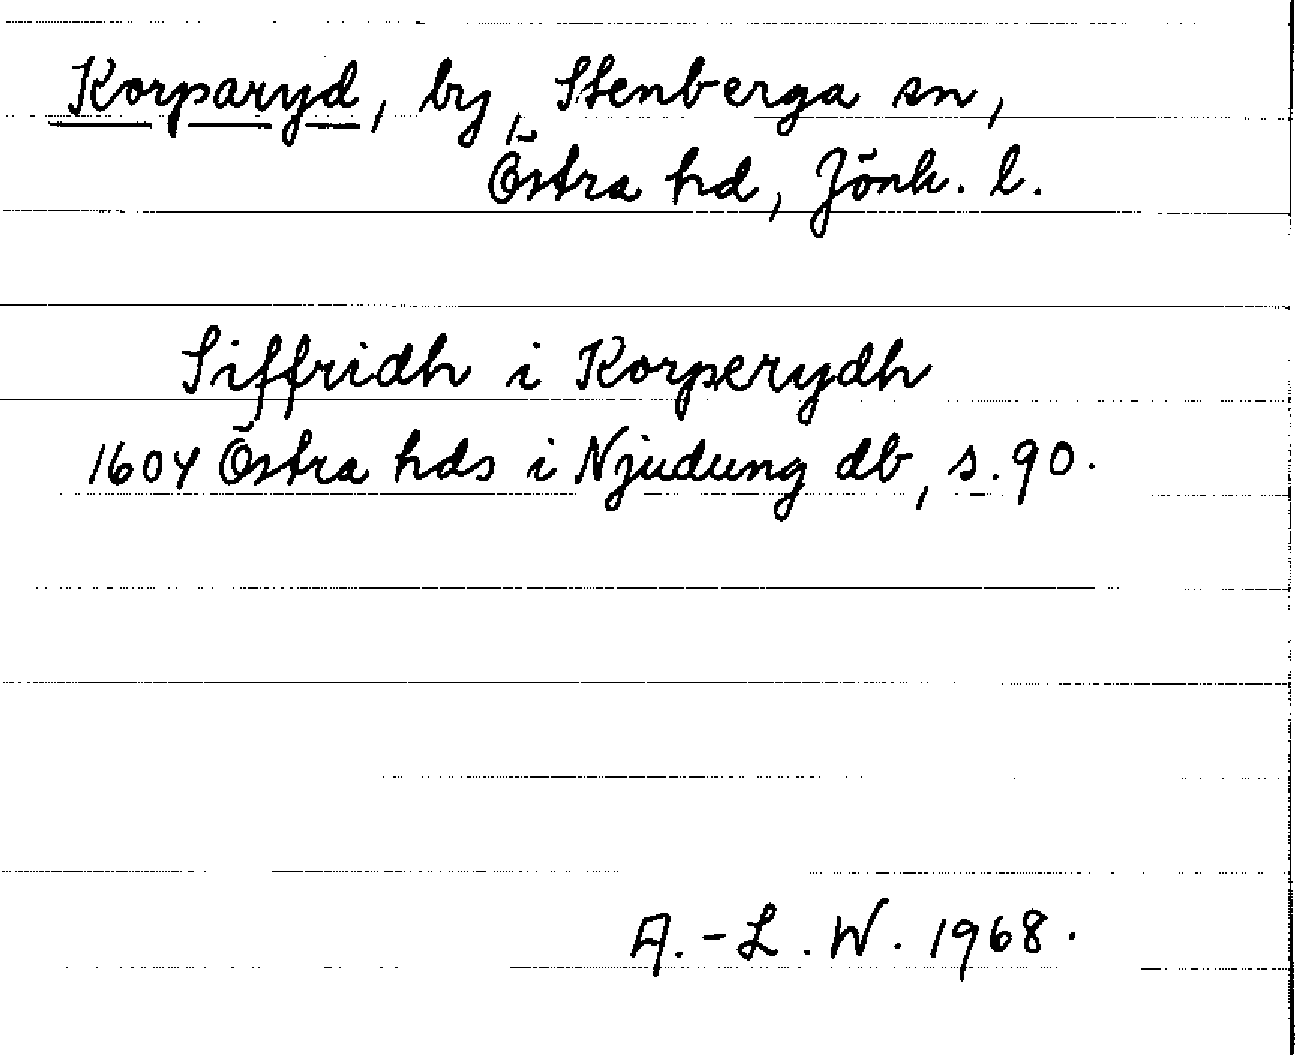 Korparyd, by, Stenberga sn,
Östra hd, Jönk. l.
Siffridh i Korperydh
1604 Östra hds i Njudung db, s. 90.
A.-L. W. 1968.